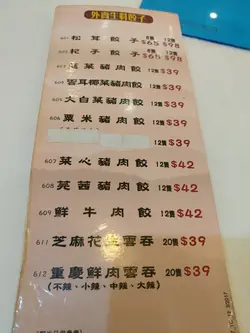 外賣生料餃子
601 松茸餃子 6隻 $65 12隻 $98
602 杞子餃子 $65 $98
菜豬肉餃 12隻 $39
604 雲耳椰菜豬肉餃 12隻 $39
605 大白菜豬肉餃 12隻 $39
606 粟米豬肉餃 12隻 $39
12隻 $39
607 菜心豬肉餃 12隻 $42
608 芫茜豬肉餃 12隻 $42
609 鮮牛肉餃 12隻 $42
611 芝麻花生雲吞 20隻 $39
612 重慶鮮肉雲吞 20隻 $39
(不辣、小辣、中辣、大辣)